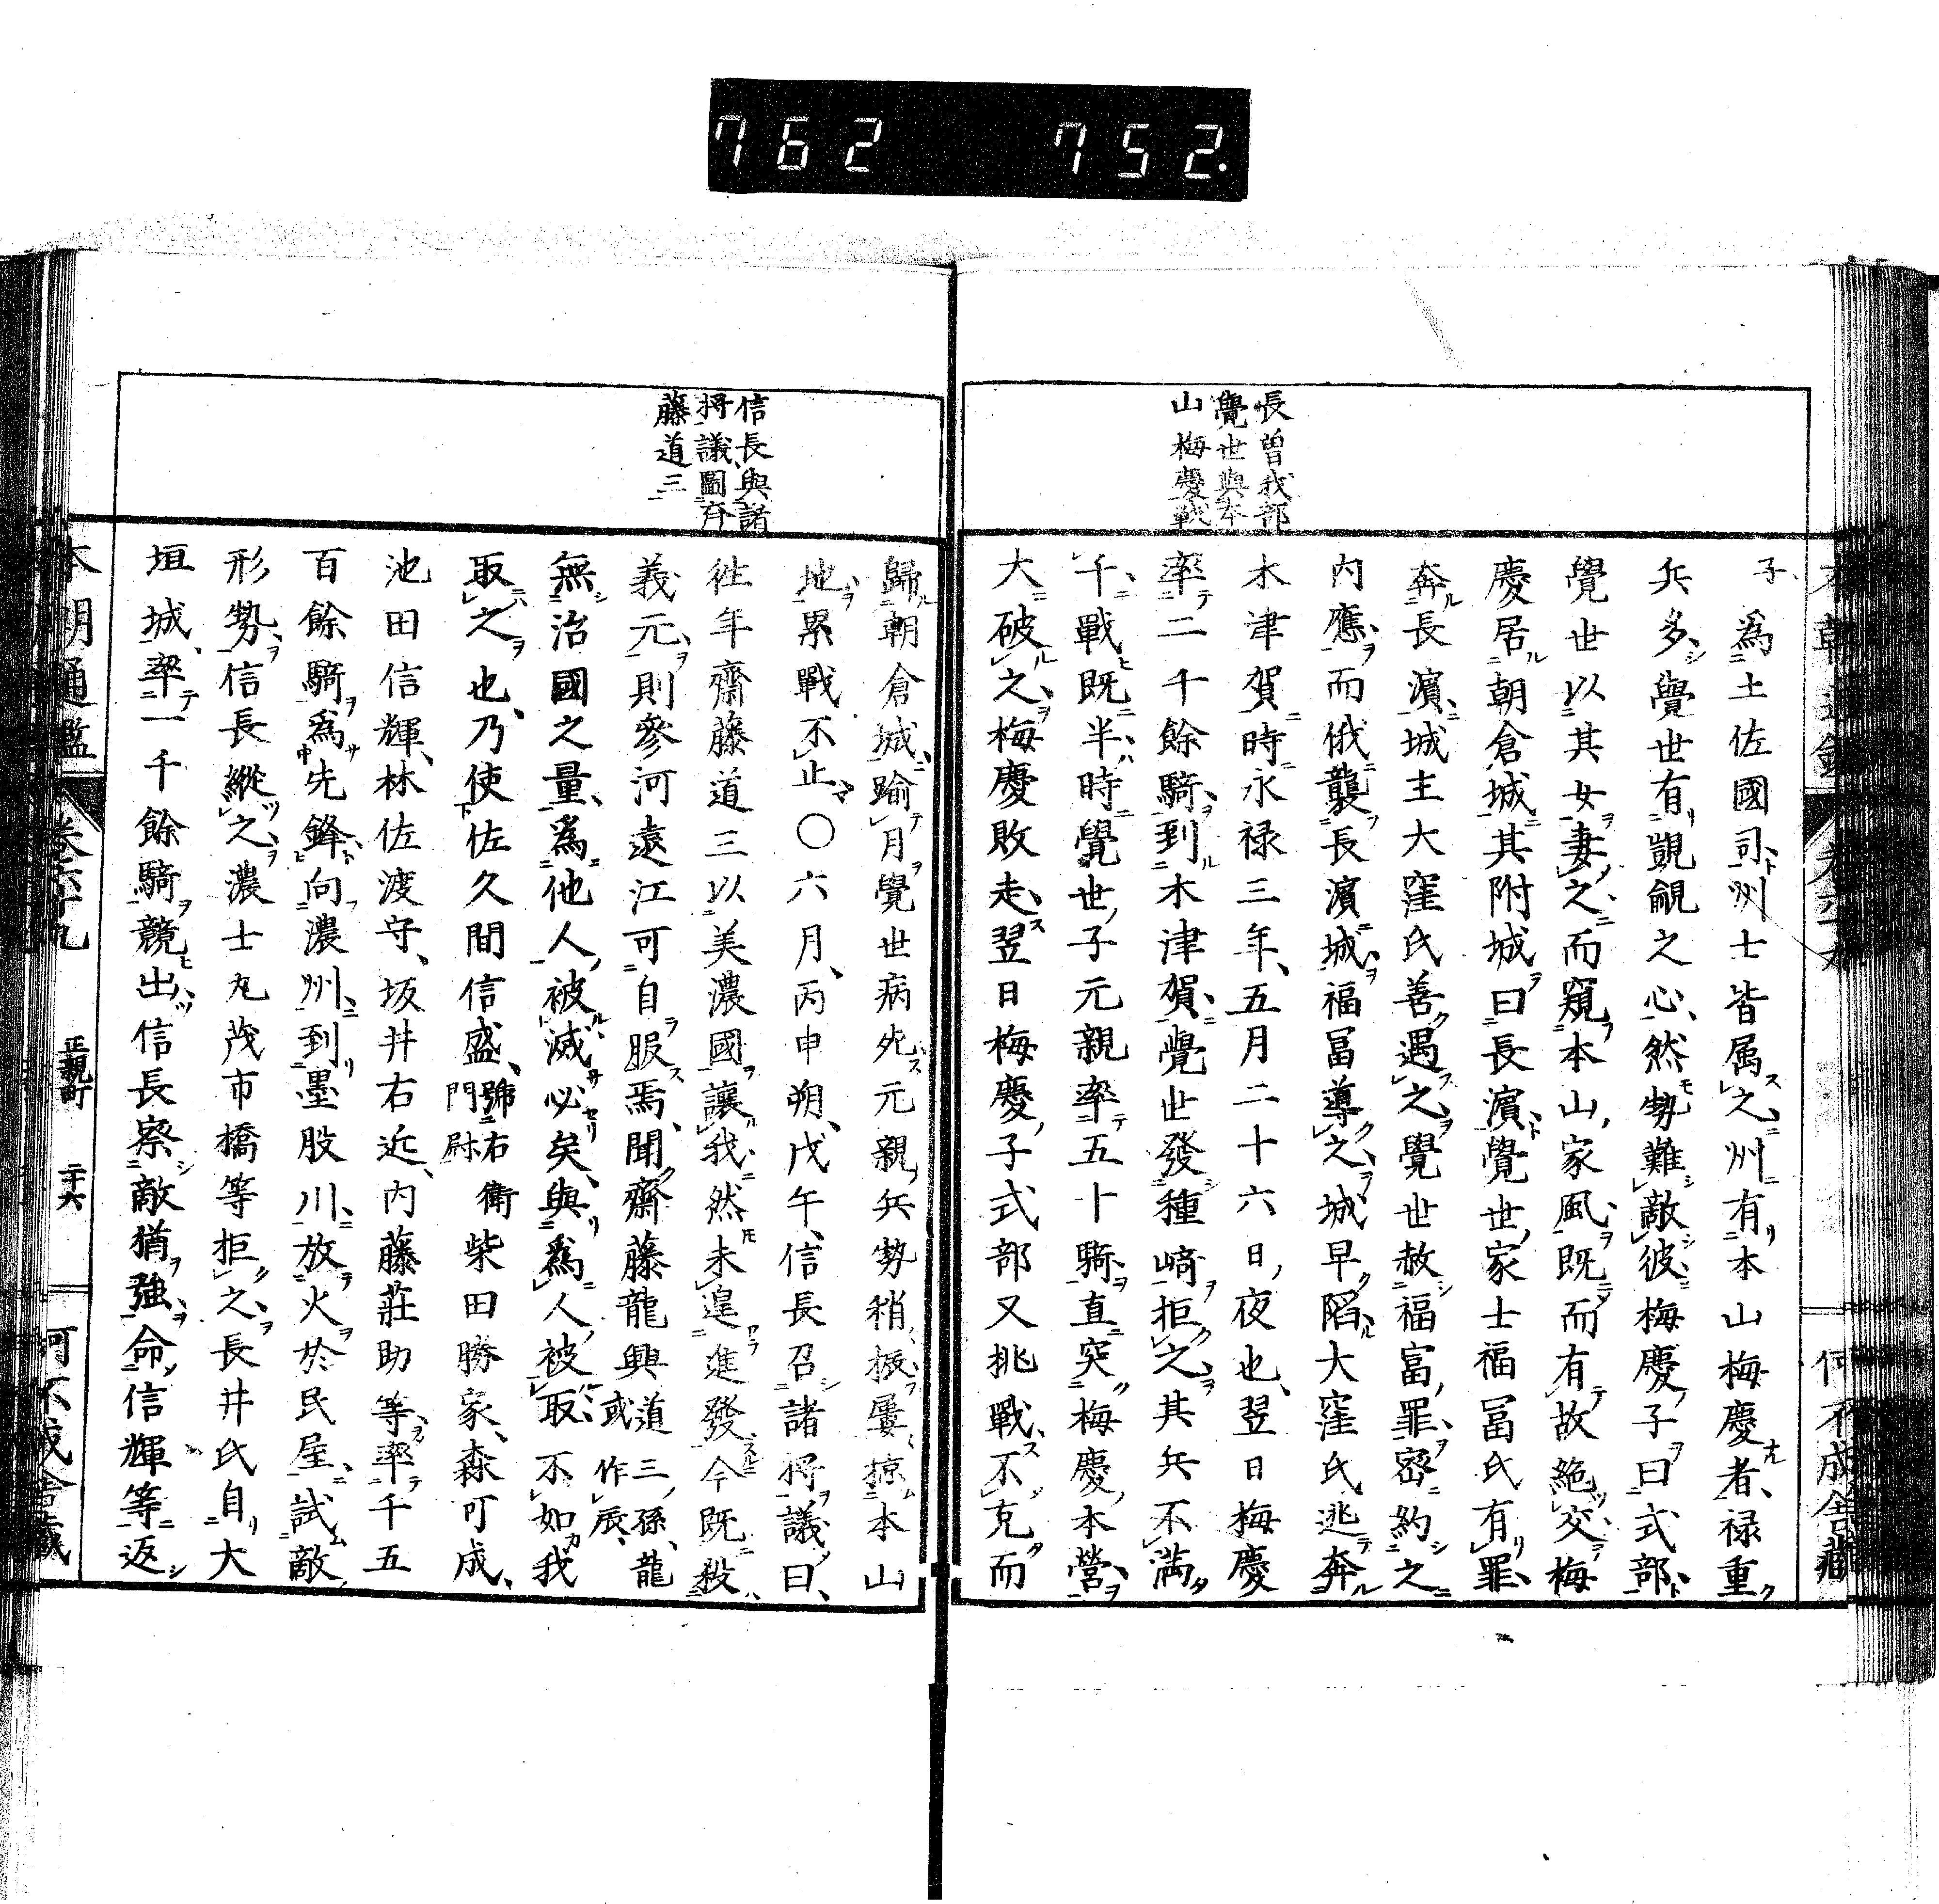 762 752.
本朝通鑑 卷六十九 何不成舎藏
長曽我部
覺世與本
山梅慶戰
子、爲土佐國司、州士皆属之、州有本山梅慶者、禄重
兵多、覺世有覬覦之心、然勢難敵彼、梅慶子曰式部、
覺世以其女妻之、而窺本山家風、既而有故絶交、梅
慶居朝倉城、其附城曰長濵、覺世家士福冨氏有罪、
奔長濵、城主大窪氏善遇之、覺世赦福富罪、密約之
内應、而俄襲長濵城、福冨導之、城早陷、大窪氏逃奔
木津賀、時永禄三年、五月二十六日、夜也、翌日梅慶
率二千餘騎、到木津賀、覺世發種﨑拒之、其兵不満
千、戰既半、時覺世子元親率五十騎、直突梅慶本營、
大破之、梅慶敗走、翌日梅慶子式部又挑戰、不克而
信長與諸
将議圖斉
藤道三
歸朝倉城、踰月覺世病死、元親兵勢稍振、屢掠本山
地、累戰不止、〇六月、丙申朔、戊午、信長召諸将議曰、
徃年齋藤道三以美濃國讓我、然未遑進發、今既殺
義元、則參河遠江可自服焉、聞齋藤龍興道三孫、龍或作辰、
無治國之量、爲他人被滅必矣、與爲人被取、不如我
取之也、乃使佐久間信盛、號右衛門尉柴田勝家、森可成、
池田信輝、林佐渡守、坂井右近、内藤莊助等、率千五
百餘騎爲先鋒、向濃州、到墨股川、放火於民屋、試敵
形勢、信長縱之、濃士丸茂市橋等拒之、長井氏自大
垣城、率一千餘騎競出、信長察敵猶強、命信輝等返
本朝通鑑 卷六十九 正親町 二十六 何不成舎藏